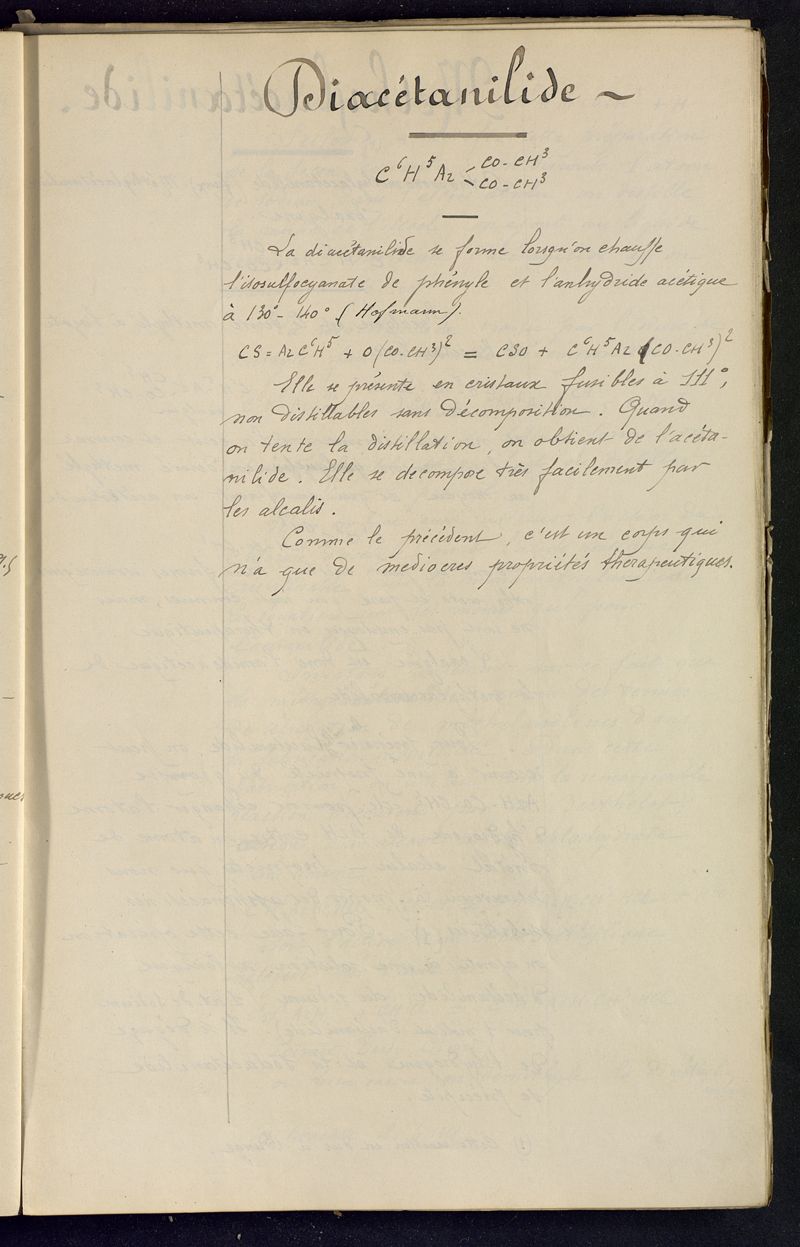 Diacétanilide ~
C⁶H⁵Az < CO-CH³
CO-CH³
La diacétanilide se forme lorsqu'on chauffe
l'isosulfocyanate de phényle et l'anhydride acétique
à 130°- 140° (Hofmann).
CS=AzC⁶H⁵ + O(CO-CH³)² = CSO + C⁶H⁵Az(CO-CH³)²
Elle se présente en cristaux fusibles à 111°,
non distillables sans décomposition. Quand
on tente la distillation, on obtient de l'acéta-
nilide. Elle se decompose très facilement par
les alcalis.
Comme le précédent, c'est un corps qui
n'a que de mediocres propriétés thérapeutiques.